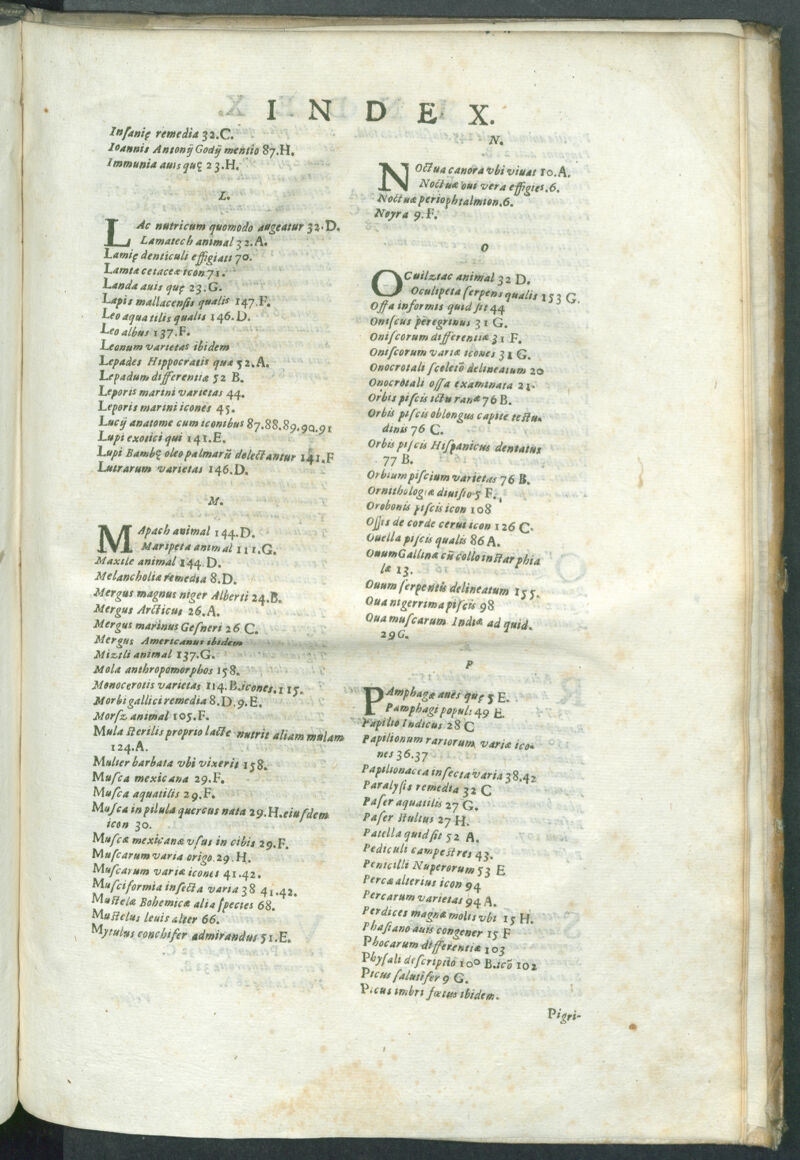 INDEX.
Inſanię remedia 32.C.
Ioannis Antonij Godij mentio 87.H.
Immunia auis quę 23.H.
L.
LAc nutricum quomodo augeatur 32.D.
Lamatech animal 32.A.
Lamię denticuli effigiati 70.
Lamia cetaceæ icon 71.
Landa auis quę 23.G.
Lapis mallacenſis qualis 147.F.
Leo aquatilis qualis 146.D.
Leo albus 137.F.
Leonum varietas ibidem
Lepades Hippocratis qua 52.A.
Lepadum differentiæ 52 B.
Leporis marini varietas 44.
Leporis marini icones 45.
Lucij anatome cum iconibus 87.88.89.90.91
Lupi exotici qui 141.E.
Lupi Bambę oleo palmarũ delectantur 141.F
Lutrarum varietas 146.D.
M.
MApach animal 144.D.
Maripeta animal 111.G.
Maxtle animal 144 D.
Melancholiæ remedia 8.D.
Mergus magnus niger Alberti 24.B.
Mergus Arcticus 26.A.
Mergus marinus Geſneri 26 C.
Mergus Americanus ibidem
Miztli animal 137.G.
Mola anthropomorphos 158.
Monocerotis varietas 114.B.icones.115.
Morbi gallici remedia 8.D.9.E.
Morſz animal 105.F.
Mula ſterilis proprio lacte nutrit aliam mulam
124.A.
Mulier barbata vbi vixerit 158.
Muſca mexicana 29.F.
Muſca aquatilis 29.F.
Muſca in pilula quercus nata 29.H.eiuſdem
icon 30.
Muſcæ mexicanæ vſus in cibis 29.F.
Muſcarum varia origo.29.H.
Muſcarum variæ icones 41.42.
Muſciformia inſecta varia 38 41.42.
Muſtelæ Bohemicæ alia ſpecies 68.
Muſtelus leuis alter 66.
Mytulus conchifer admirandus 51.E.
N.
NOctua canora vbi viuat 10.A.
Noctuæ oui vera effigies.6.
Noctuæ periophtalmion.6.
Noyra 9.F.
O
OCuilztac animal 32 D.
Oculipeta ſerpens qualis 153 G.
Offa informis quid ſit 44
Oniſcus peregrinus 31 G.
Oniſcorum differentiæ 31 F.
Oniſcorum variæ icones 31 G.
Onocrotali ſceletõ delineatum 20
Onocrotali oſſa examinata 21.
Orbis piſcis ictu ranæ 76 B.
Orbis piſcis oblongus capite teſtu-
dinis 76 C.
Orbis piſcis Hiſpanicus dentatus
77 B.
Orbium piſcium varietas 76 B.
Ornithologiæ diuiſio 5 F.
Orobonis piſcis icon 108
Oſſis de corde cerui icon 126 C.
Ouella piſcis qualis 86 A.
Ouum Gallinæ cũ collo inſtar phia
læ 13.
Ouum ſerpentis delineatum 155.
Oua nigerrima piſcis 98
Oua muſcarum Indiæ ad quid.
29G.
P
PAmphagæ aues quę 5 E.
Pamphagi populi 49 E.
Papilio Indicus 28 C
Papilionum rariorum variæ ico-
nes 36.37
Papilionacea inſecta varia 38.42
Paralyſis remedia 32 C
Paſer aquatilis 27 G.
Paſer ſtultus 27 H.
Patella quid ſit 52 A.
Pediculi campeſtres 43.
Penicilli Nuperorum 53 E
Percæ alterius icon 94
Percarum varietas 94 A.
Perdices magnæ molis vbi 15 H.
Phaſiano auis congener 15 F
Phocarum differentiæ 103
Phyſali deſcriptio 100 B.icõ 102
Picus ſalutifer 9 G.
Picus imbri fœtus ibidem.
Pigri-